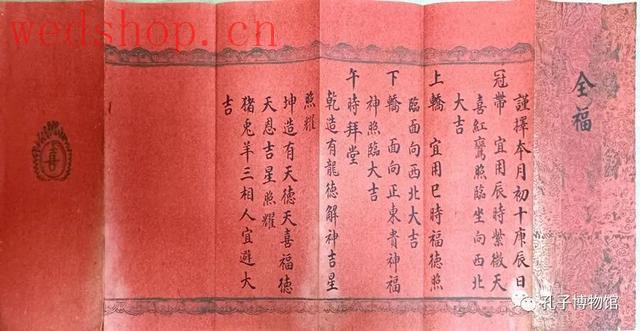 wedshop.cn
全福
謹擇本月初十庚辰日
冠帶 宜用辰時紫微天
喜紅鸞照臨坐向西北
大吉
上轎 宜用巳時福德照
臨面向西北大吉
下轎 面向正東貴神福
神照臨大吉
午時拜堂
乾造有龍德解神吉星
照耀
坤造有天德天喜福德
天恩吉星照耀
猪兎羊三相人宜避大
吉
囍
孔子博物馆